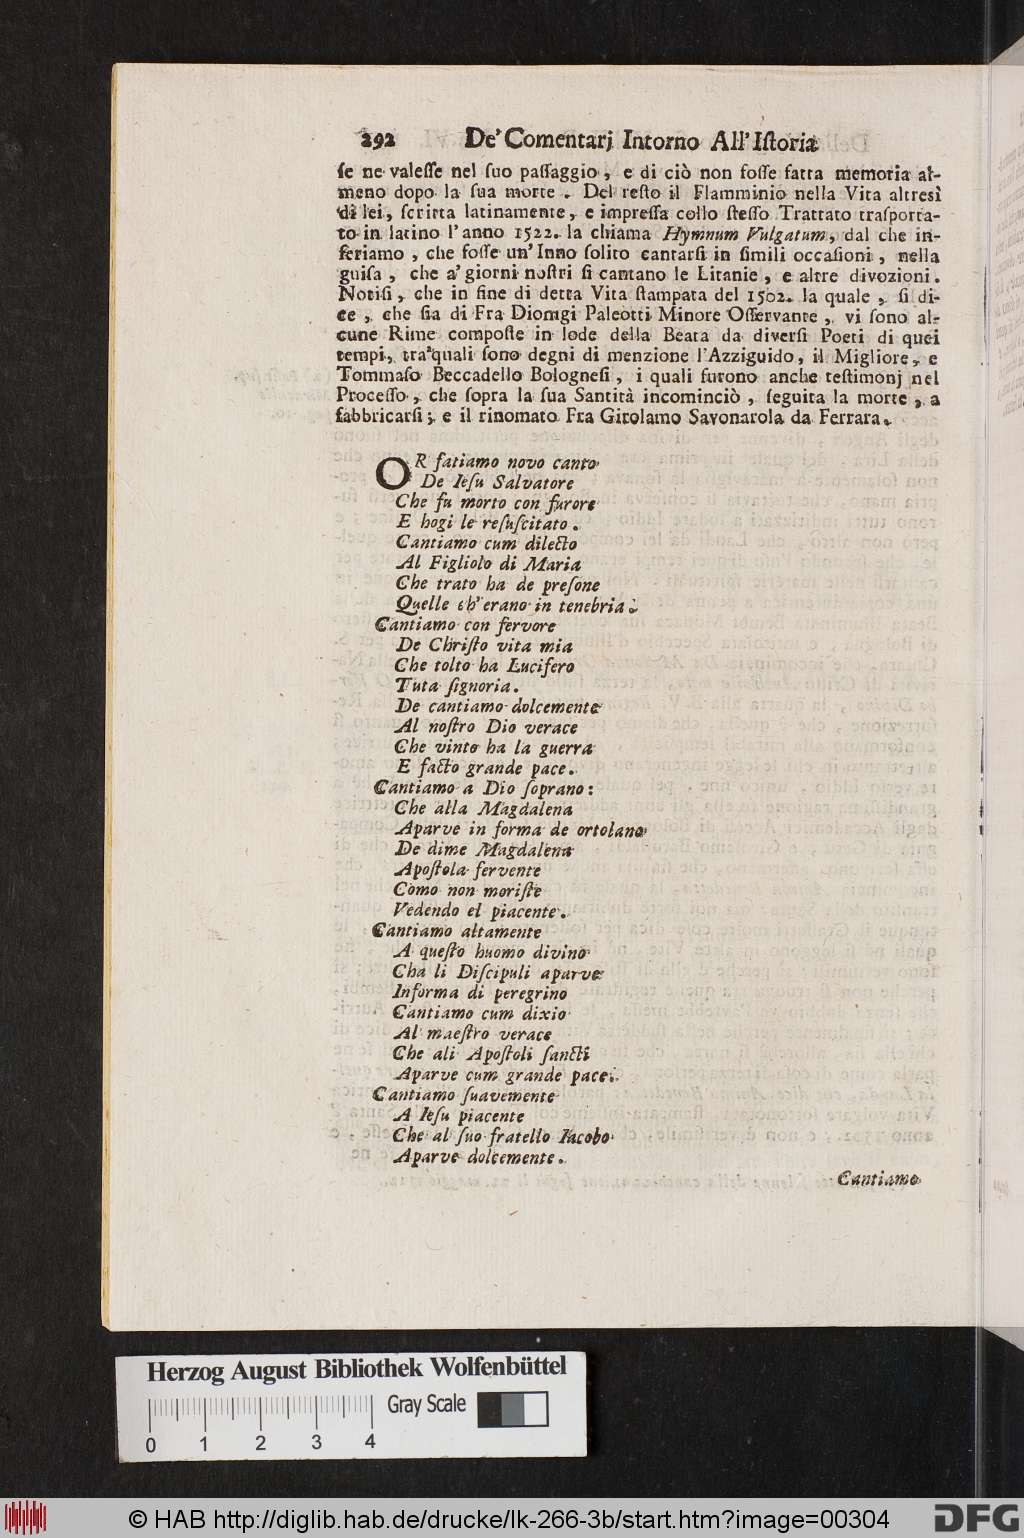 292 De' Comentarj Intorno All' Iſtoria
ſe ne valeſſe nel ſuo paſſaggio, e di ciò non foſſe fatta memoria al-
meno dopo la ſua morte. Del reſto il Flamminio nella Vita altresì
di lei, ſcritta latinamente, e impreſſa collo ſteſſo Trattato traſporta-
to in latino l'anno 1522. la chiama Hymnum Vulgatum, dal che in-
feriamo, che foſſe un' Inno ſolito cantarſi in ſimili occaſioni, nella
guiſa, che a' giorni noſtri ſi cantano le Litanie, e altre divozioni.
Notiſi, che in fine di detta Vita ſtampata del 1502. la quale, ſi di-
ce, che ſia di Fra Dionigi Paleotti Minore Oſſervante, vi ſono al-
cune Rime compoſte in lode della Beata da diverſi Poeti di quei
tempi, tra'quali ſono degni di menzione l'Azziguido, il Migliore, e
Tommaſo Beccadello Bologneſi, i quali furono anche teſtimonj nel
Proceſſo, che ſopra la ſua Santità incominciò, ſeguita la morte, a
fabbricarſi; e il rinomato Fra Girolamo Savonarola da Ferrara.
OR fatiamo novo canto
De Ieſu Salvatore
Che fu morto con furore
E hogi le reſuſcitato.
Cantiamo cum dilecto
Al Figliolo di Maria
Che trato ha de preſone
Quelle ch' erano in tenebria.
Cantiamo con fervore
De Chriſto vita mia
Che tolto ha Lucifero
Tuta ſignoria.
De cantiamo dolcemente
Al noſtro Dio verace
Che vinto ha la guerra
E facto grande pace.
Cantiamo a Dio ſoprano:
Che alla Magdalena
Aparve in forma de ortolano
De dime Magdalena
Apoſtola fervente
Como non moriſte
Vedendo el piacente.
Cantiamo altamente
A queſto huomo divino
Cha li Diſcipuli aparve
Informa di peregrino
Cantiamo cum dixio
Al maeſtro verace
Che ali Apoſtoli ſancti
Aparve cum grande pace.
Cantiamo ſuavemente
A Ieſu piacente
Che al ſuo fratello Iacobo
Aparve dolcemente.
Cantiamo
Herzog August Bibliothek Wolfenbüttel
Gray Scale
0 1 2 3 4
© HAB http://diglib.hab.de/drucke/lk-266-3b/start.htm?image=00304
DFG